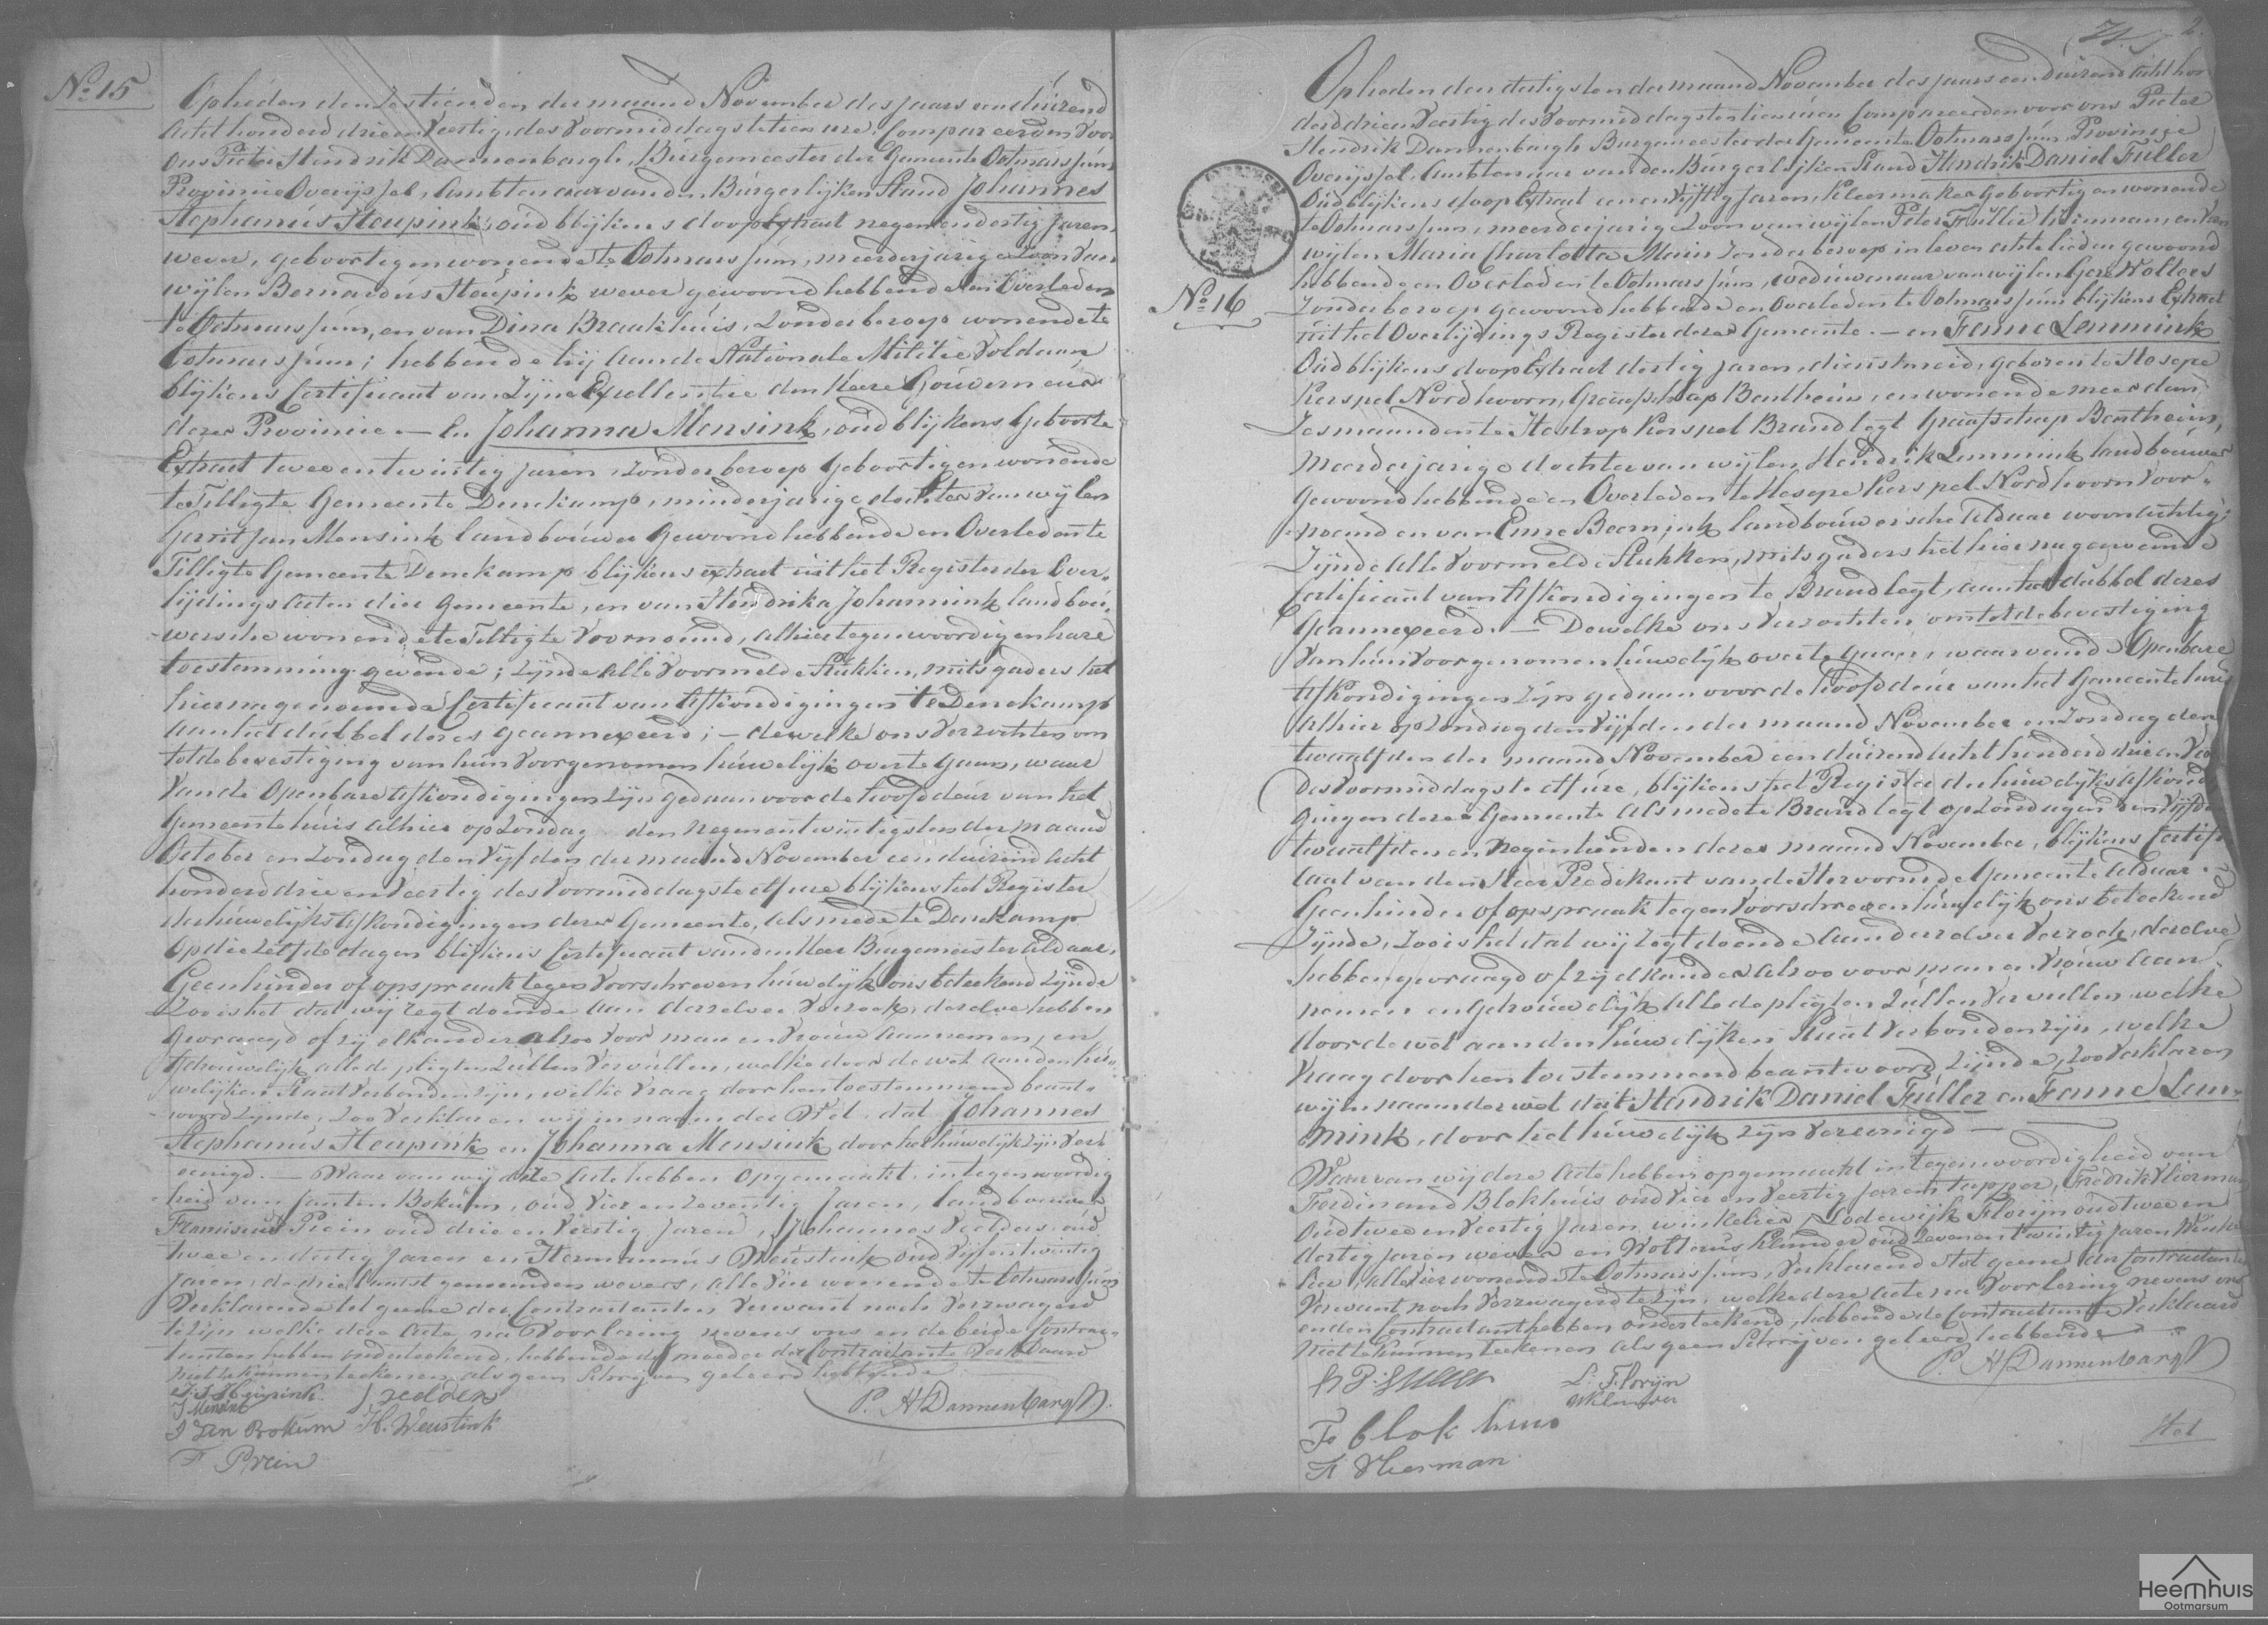 No 15
Op heden den zestienden der maand November des jaars een duizend
acht honderd drie en veertig, des voormiddags te tien ure, Compareerden voor
ons Pieter Hendrik Dannenbargh, Burgemeester der Gemeente Ootmarssum,
Provincie Overijssel, Ambtenaar van den Burgerlijken Stand Johannes
Stephanus Heupink, oud blijkens doop Extract negen en dertig jaren,
wever, geboortig en wonende te Ootmarssum, meerderjarige zoon van
wijlen Bernardus Heupink, wever gewoond hebbende en Overleden
te Ootmarssum, en van Dina Braakhuis, zonder beroep wonende te
Ootmarssum; hebbende hij aan de Nationale Militie voldaan
blijkens Certificaat van zijne Excellentie den Heere Gouverneur
dezer Provincie. — En Johanna Mensink, oud blijkens Geboorte
Extract twee en twintig jaren, zonder beroep geboortig en wonende
te Tilligte Gemeente Denekamp, minderjarige dochter van wijlen
Gerrit Jan Mensink landbouwer gewoond hebbende en Overleden te
Tilligte Gemeente Denekamp blijkens extract uit het Register der Over-
lijdings Acten dier Gemeente, en van Hendrika Johannink landbou-
wersche wonende te Tilligte voornoemd, alhier tegenwoordig en hare
toestemming gevende; zijnde alle voormelde stukken, mitsgaders het
hierna genoemde Certificaat van Afkondigingen te Denekamp
aan het dubbel dezes geannexeerd; — dewelke ons verzochten om
tot de bevestiging van hun voorgenomen huwelijk over te gaan, waar
van de Openbare Afkondigingen zijn gedaan voor de hoofddeur van het
Gemeentehuis alhier op Zondag den negen en twintigsten der maand
October en Zondag den vijfden der maand November een duizend acht
honderd drie en veertig des voormiddags te elf ure blijkens het Register
der huwelijks Afkondigingen dezer Gemeente, als mede te Denekamp
op die zelfde dagen blijkens Certificaat van den Heer Burgemeester aldaar.
Geen hinder of opspraak tegen voorschreven huwelijk ons beteekend zijnde
Zoo is het dat wij regt doende aan derzelver verzoek, dezelve hebben
gevraagd of zij elkander alzoo voor man en vrouw aannemen, en
getrouwelijk alle de pligten zullen vervullen, welke door de wet aan den hu-
welijken Staat verbonden zijn, welke vraag door hen toestemmend beant-
woord zijnde, Zoo verklaren wij in naam der Wet, dat Johannes
Stephanus Heupink en Johanna Mensink door het huwelijk zijn ver-
eenigd. — Waar van wij deze Acte hebben opgemaakt, in tegenwoordig
heid van Janten Bokum, oud vier en zeventig jaren, landbouwer
Franciscus Prein oud drie en veertig jaren, Johannes Velders oud
twee en dertig jaren en Hermannus Weustink oud vijf en twintig
jaren, de drie laatst genoemden wevers, alle vier wonende te Ootmarssum
Verklarende tot geene der Contractanten verwant noch verzwagerd
te zijn welke deze Acte na voorlezing nevens ons en de beide Contrac-
tanten hebben onderteekend, hebbende de moeder der Contractante verklaard
niet te kunnen teekenen als geen schrijven geleerd hebbende
J. S. Heupink J Velders
J Mensink
J Ten Bokum H. Weustink
P. H. Dannenbargh
F Prein
No 16
Op heden den dertigsten der maand November des jaars een duizend acht hon
derd drie en veertig des voormiddags ten tien uren Compareerden voor ons Pieter
Hendrik Dannenbargh Burgemeester der Gemeente Ootmarssum, Provincie
Overijssel, Ambtenaar van den Burgerlijken Stand Hendrik Daniel Fuller
Oud blijkens doop Extract een en vijftig jaren, kleermaker geboortig en wonende
te Ootmarssum, meerderjarige zoon van wijlen Peter Fuller en van
wijlen Maria Charlotta Marin zonder beroep in leven echtelieden gewoond
hebbende en Overleden te Ootmarssum, weduwenaar van wijlen Gese Wolters
zonder beroep gewoond hebbende en Overleden te Ootmarssum blijkens Extract
uit het Overlijdings Register dezer Gemeente. — en Fenne Lemmink
Oud blijkens doop Extract dertig jaren, dienstmeid, geboren te Hesepe
Kerspel Nordhoorn, Graafschap Bentheim, en wonende meer dan
zes maanden te Hestrop Kerspel Brandlegt Graafschap Bentheim,
meerderjarige dochter van wijlen Hendrik Lemmink landbouwer
gewoond hebbende en Overleden te Hesepe Kerspel Nordhoorn voor-
noemd en van Enne Beernink landbouwersche aldaar woonachtig;
Zijnde alle voormelde stukken, mitsgaders het hierna genoemde
Certificaat van Afkondigingen te Brandlegt, aan het dubbel dezes
Geannexeerd. — Dewelke ons verzochten om tot de bevestiging
van hun voorgenomen huwelijk over te gaan, waar van de Openbare
Afkondigingen zijn gedaan voor de hoofddeur van het Gemeente huis
Alhier op Zondag den vijfden der maand November en Zondag den
twaalfden der maand November een duizend acht honderd drie en vee
des voormiddags te elf ure, blijkens het Register der huwelijks Afkond
gingen dezer Gemeente als mede te Brandlegt op Zondagen den vijfden
twaalfden en negentienden dezer maand November, blijkens Certifi
caat van den Heer Predikant van de Hervormde Gemeente aldaar. —
Geen hinder of opspraak tegen voorschreven huwelijk ons beteekend
Zijnde, Zoo is het dat wij regt doende aan derzelver verzoek, dezelve
hebben gevraagd of zij elkander alzoo voor man en vrouw aan-
nemen en getrouwelijk alle de pligten zullen vervullen welke
door de wet aan den huwelijken Staat verbonden zijn, welke
vraag door hen toestemmend beantwoord zijnde, Zoo verklaren
wij in naam der wet dat Hendrik Daniel Fuller en Fenne Lem-
mink, door het huwelijk zijn vereenigd —
Waar van wij deze Acte hebben opgemaakt in tegenwoordigheid van
Ferdinand Blokhuis oud vier en veertig jaren tapper, Fredrik Vlierman
Oud twee en veertig jaren winkelier, Lodewijk Florijn oud twee en
dertig jaren wever en Wolterus Klumper oud zeven en twintig jaren
alle vier wonende te Ootmarssum, verklarende tot geene der Contractanten
verwant noch verzwagerd te zijn, welke deze Acte na voorlezing nevens ons
en den Contractant hebben onderteekend, hebbende de Contractante verklaard
niet te kunnen teekenen als geen schrijven geleerd hebbende
P. H. Dannenbargh
H D: Fuller L: Florijn
F: Blokhuis
F Vlierman
Het
Heemhuis
Ootmarsum